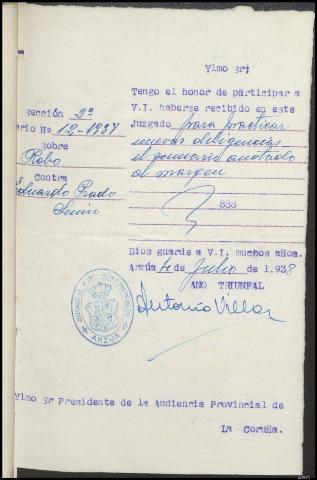 Ylmo Sr;
Tengo el honor de participar a
V.I. haberse recibido en este
Juzgado para practicar
nuevas diligencias
el sumario anotado
al margen
888
Sección 2ª
ario Nº 12-1937
sobre
Robo
Contra
Eduardo Prado
Dios guarde a V.I. muchos años.
Arzúa 4 de Julio de 1.938
AÑO TRIUNFAL
Antonio Villar
ARZUA
Ylmo Sr Presidente de la Audiencia Provincial de
La Coruña.